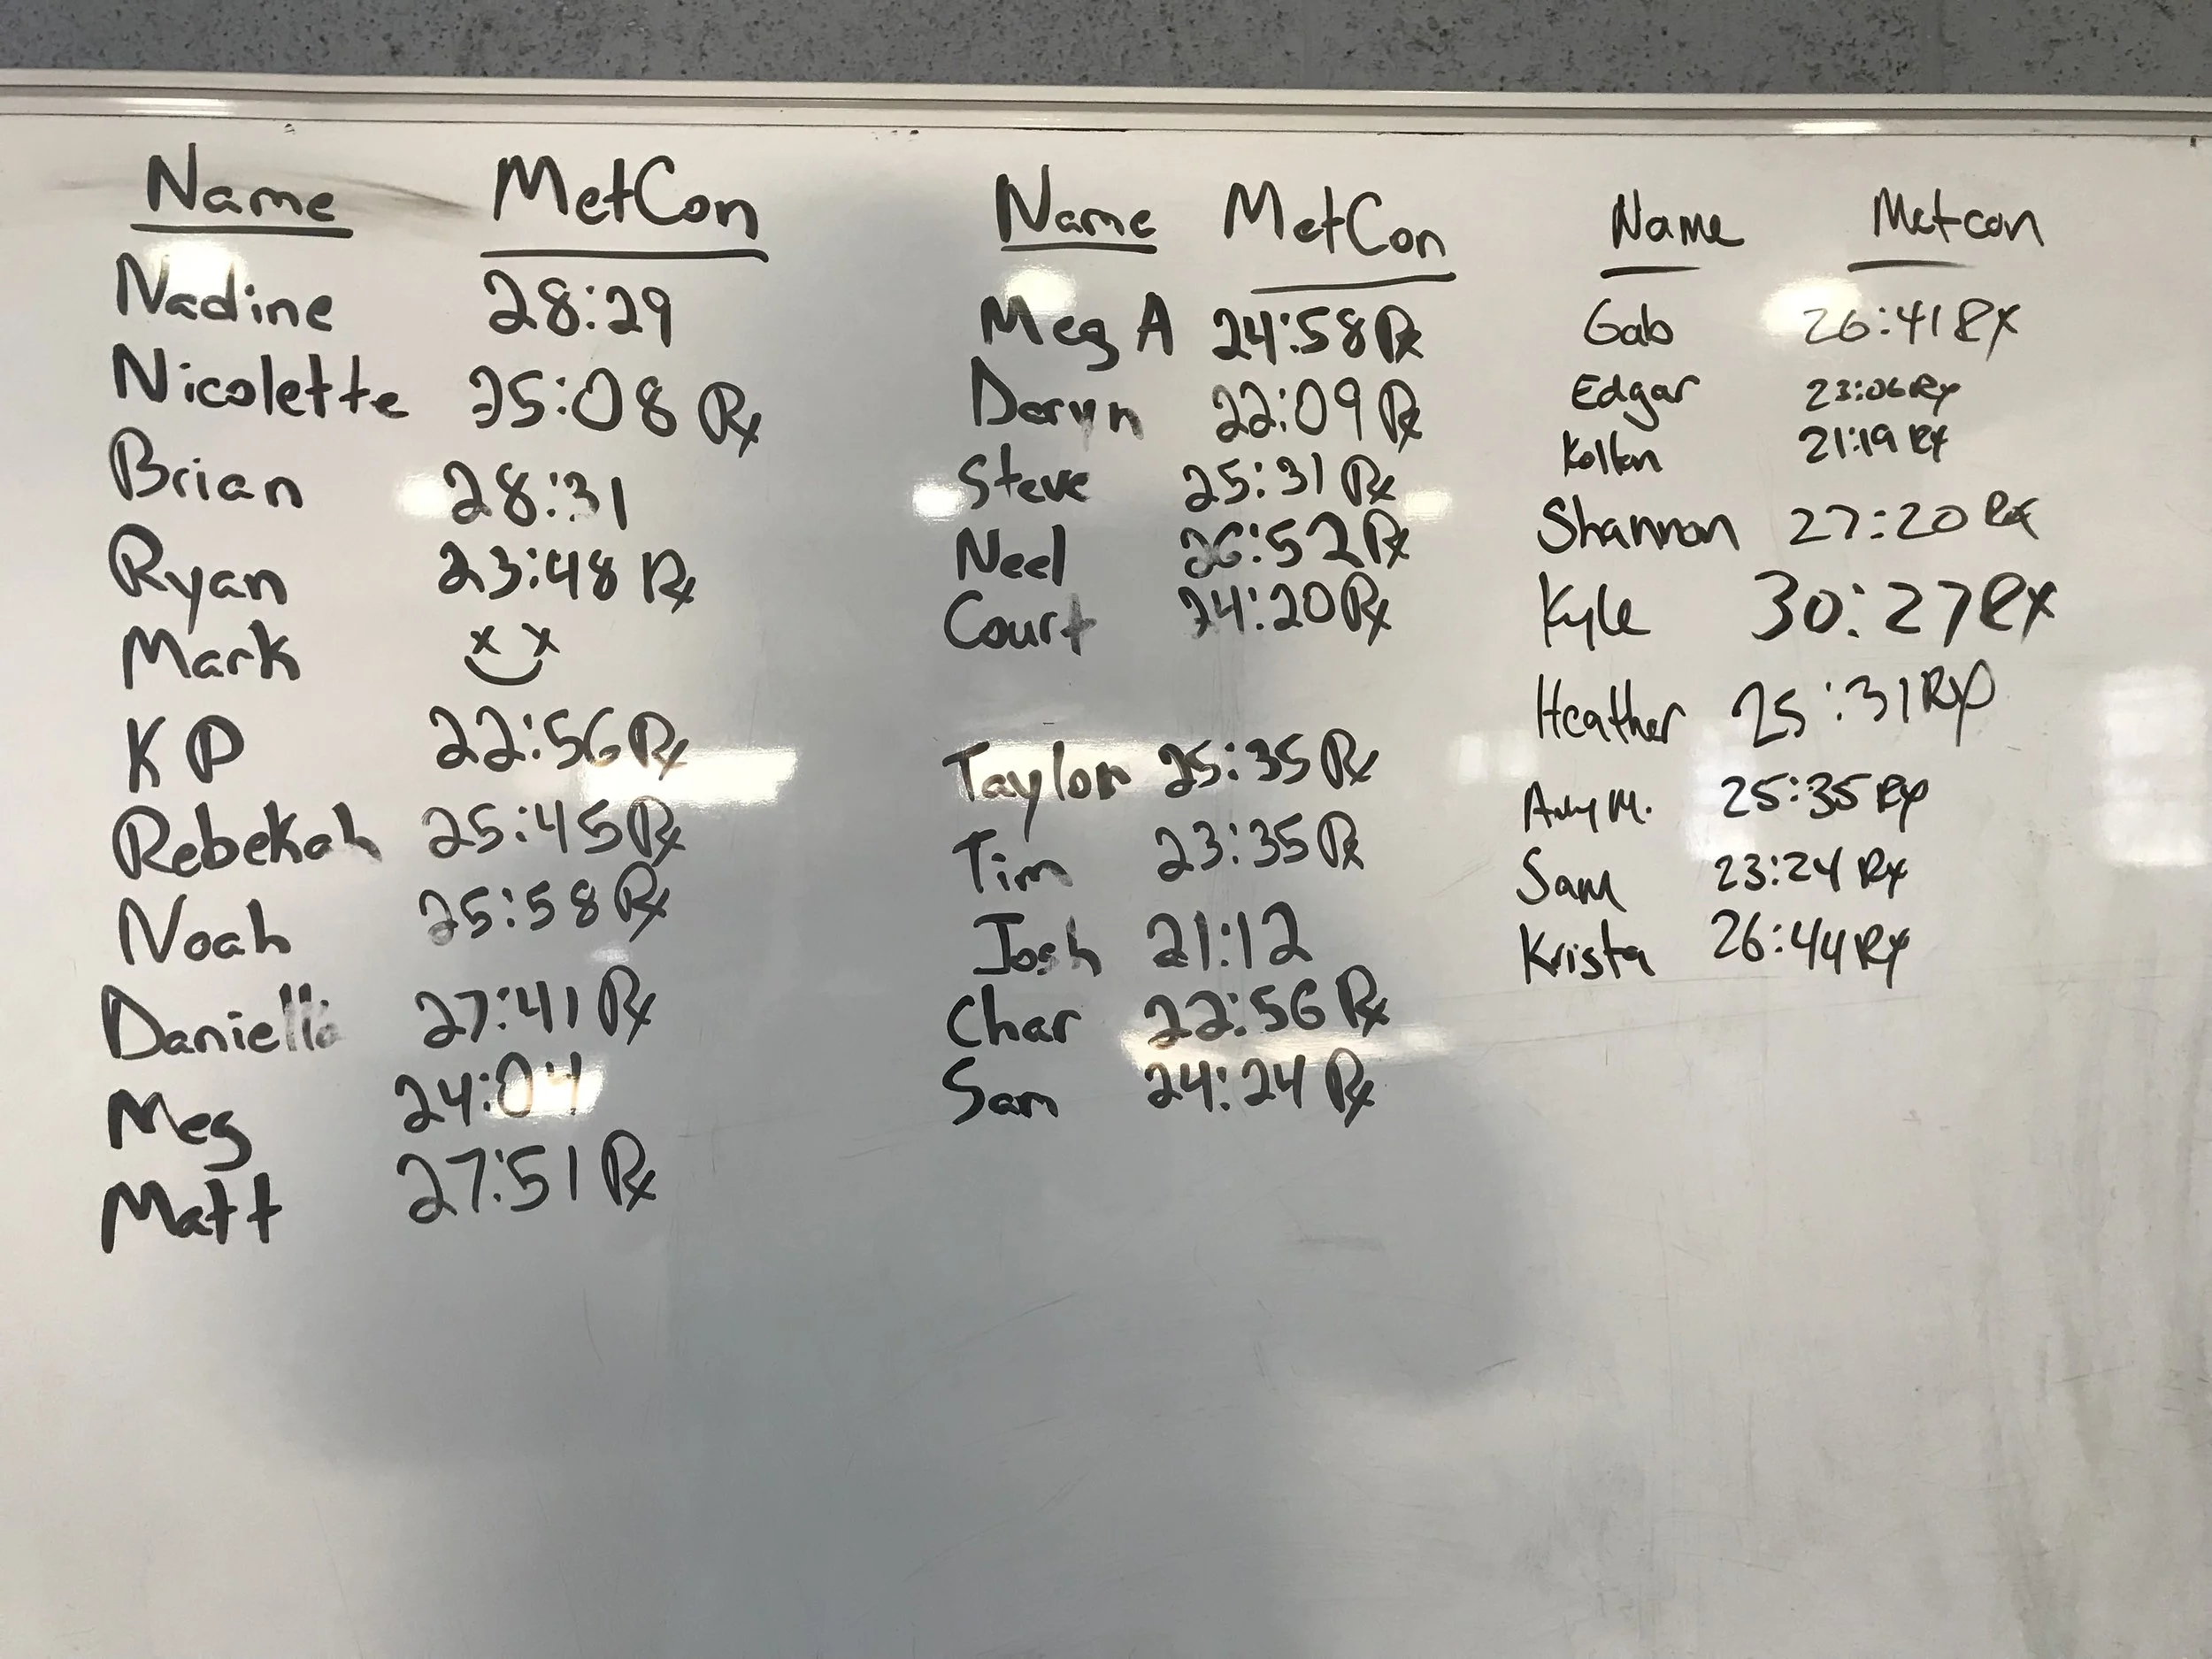 Name MetCon
Nadine 28:29
Nicolette 25:08 Rx
Brian 28:31
Ryan 23:48 Rx
Mark
KP 22:56 Rx
Rebekah 25:45 Rx
Noah 25:58 Rx
Danielle 27:41 Rx
Meg 24:04
Matt 27:51 Rx
Name MetCon
Meg A 24:58 Rx
Daryn 22:09 Rx
Steve 25:31 Rx
Neel 26:52 Rx
Court 24:20 Rx
Taylor 25:35 Rx
Tim 23:35 Rx
Josh 21:12
Char 22:56 Rx
Sam 24:24 Rx
Name Metcon
Gab 26:41 Rx
Edgar 23:06 Rx
21:19 Rx
Shannon 27:20 Rx
Kyle 30:27 Rx
Heather 25:31 Rx
M. 25:35 Rx
Sam 23:24 Rx
Krista 26:44 Rx